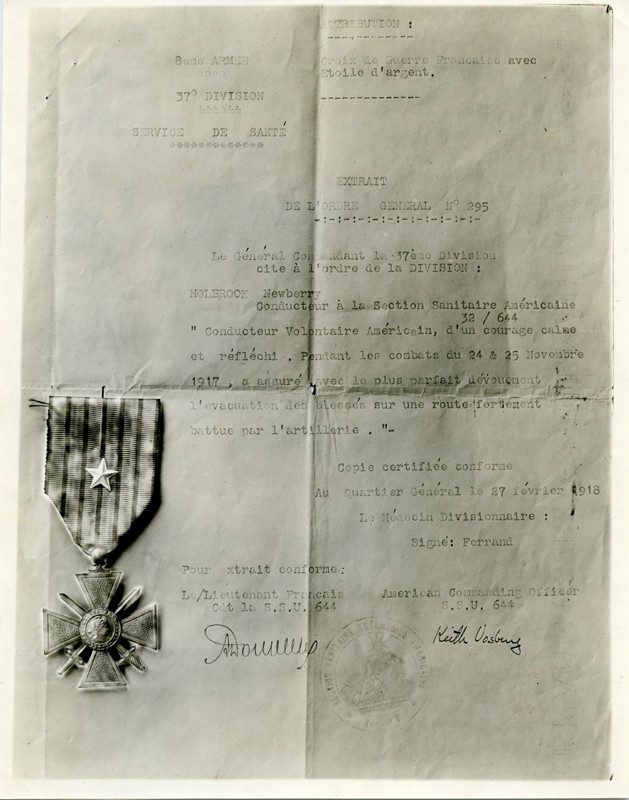 ATTRIBUTION :
8ème ARMEE
Croix de Guerre Française avec
Etoile d'argent.
37° DIVISION
SERVICE DE SANTÉ
EXTRAIT
DE L'ORDRE GENERAL N° 295
Le Général Commandant la 37ème Division
cite à l'ordre de la DIVISION :
HOLBROOK Newberry
Conducteur à la Section Sanitaire Américaine
32 / 644
" Conducteur Volontaire Américain, d'un courage calme
et réfléchi . Pendant les combats du 24 & 25 Novembre
1917 , a assuré avec le plus parfait dévouement
l'evacuation des blessés sur une route fortement
battue par l'artillerie . "-
Copie certifiée conforme
Au Quartier Général le 27 février 1918
Le Médecin Divisionnaire :
Signé: Ferrand
Pour extrait conforme:
Le/Lieutenant Francais
Cdt la S.S.U. 644
American Commanding Officer
S.S.U. 644
Keith Vosburg